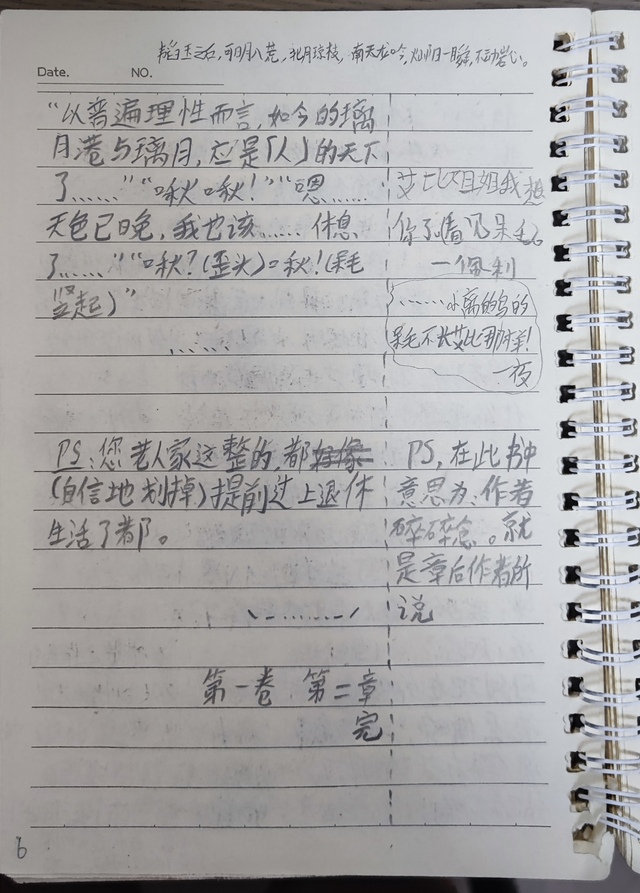 南天龙吟,灿阳一瞬,不动岩心。
Date. NO.
“以普遍理性而言,如今的璃
月港与璃月,应是「人」的天下
了……”“啾啾!”“嗯……
天色已晚,我也该……休息
了……”“啾?(歪头)啾!(呆毛
竖起)”
……
PS:您老人家这整的,都好像
(自信地划掉)提前过上退休
生活了都。
\………/
第一卷 第二章
完
艾比姐姐我想
你了(看见呆毛)
一伊利
……小离的鸟的
呆毛不长艾比那样!
一夜
PS,在此书中
意思为:作者
碎碎念。就
是章后作者所
说
6